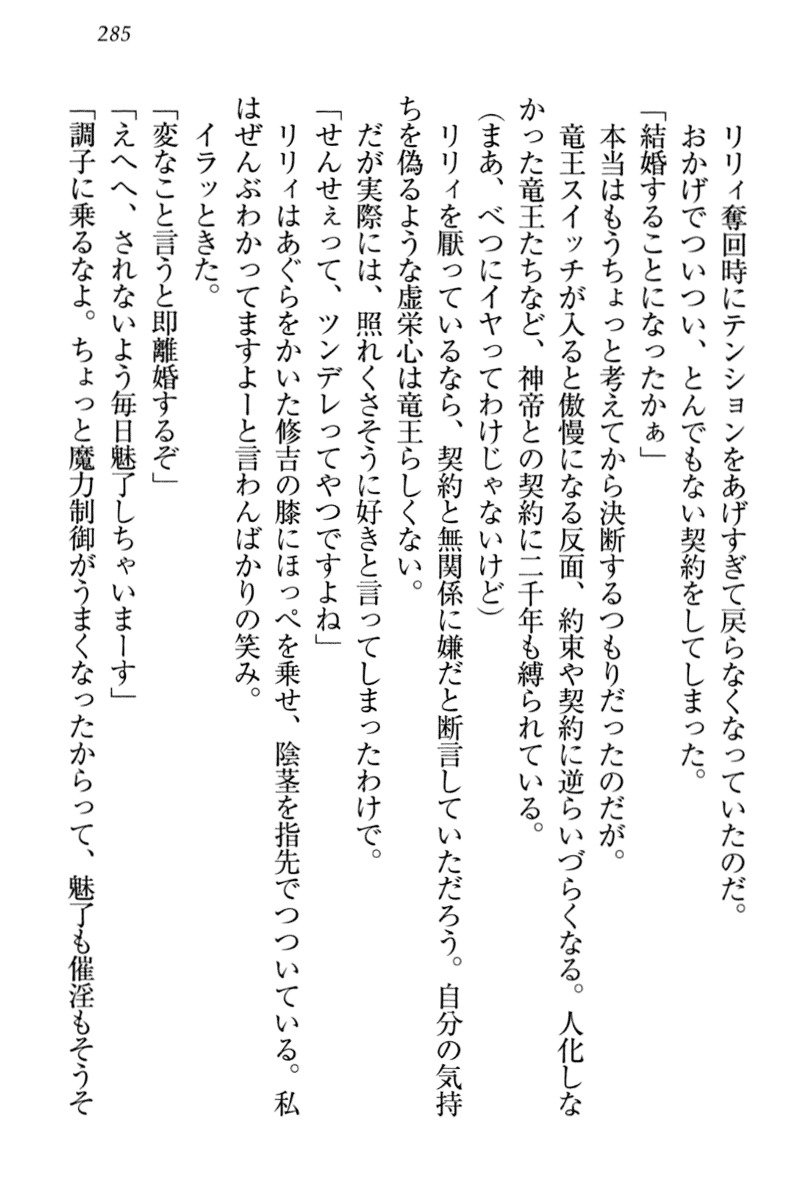 285
リリィ奪回時にテンションをあげすぎて戻らなくなっていたのだ。
おかげでついつい、とんでもない契約をしてしまった。
「結婚することになったかぁ」
本当はもうちょっと考えてから決断するつもりだったのだが。
竜王スイッチが入ると傲慢になる反面、約束や契約に逆らいづらくなる。人化しな
かった竜王たちなど、神帝との契約に二千年も縛られている。
(まあ、べつにイヤってわけじゃないけど)
リリィを厭っているなら、契約と無関係に嫌だと断言していただろう。自分の気持
ちを偽るような虚栄心は竜王らしくない。
だが実際には、照れくさそうに好きと言ってしまったわけで。
「せんせぇって、ツンデレってやつですよね」
リリィはあぐらをかいた修吉の膝にほっぺを乗せ、陰茎を指先でつついている。私
はぜんぶわかってますよーと言わんばかりの笑み。
イラッときた。
「変なこと言うと即離婚するぞ」
「えへへ、されないよう毎日魅了しちゃいまーす」
「調子に乗るなよ。ちょっと魔力制御がうまくなったからって、魅了も催淫もそうそ